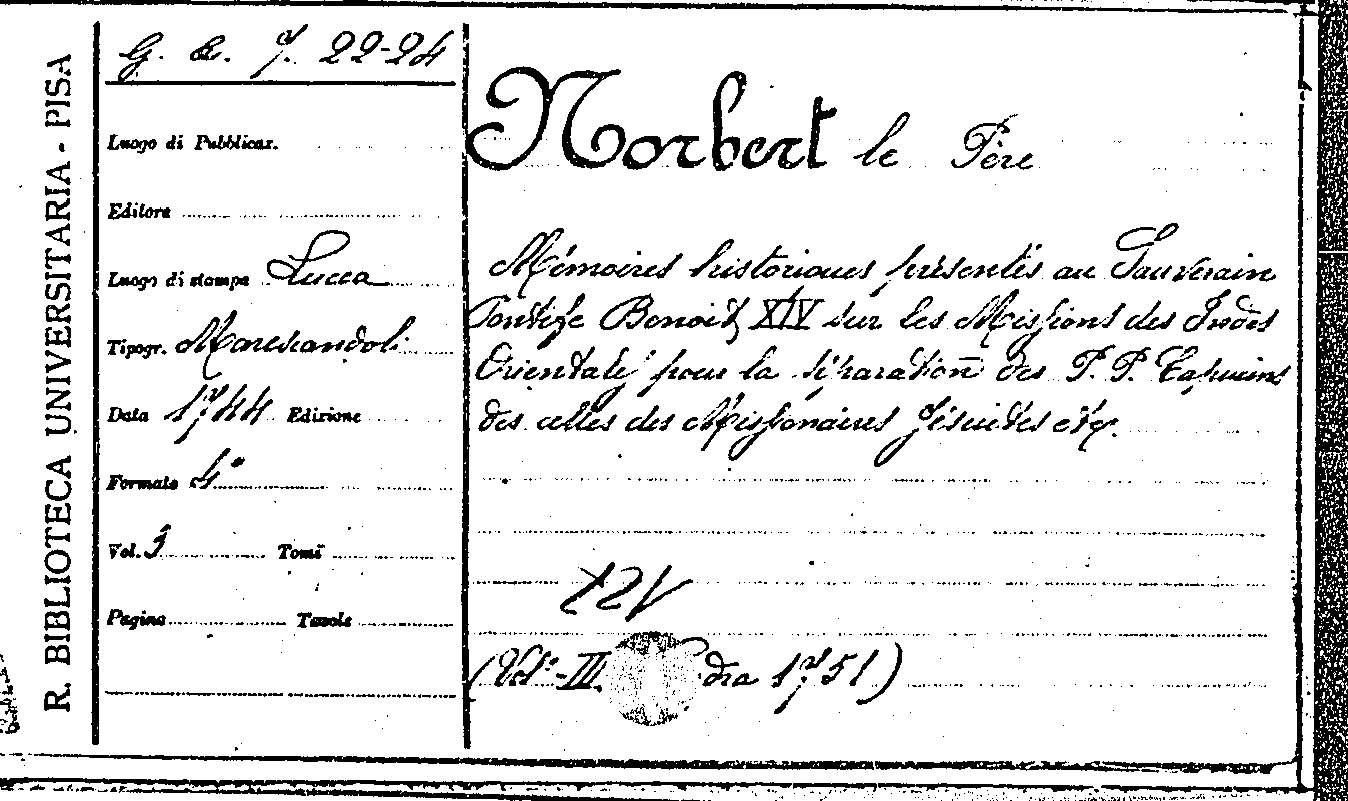 R. BIBLIOTECA UNIVERSITARIA - PISA
G. a. 7. 22-24
Luogo di Pubblicaz.
Editore
Luogo di stampa Lucca
Tipogr. Marescandoli
Data 1744 Edizione
Formato 4°
Vol. 3 Tomi
Pagine Tavole
Norbert le Père
Mémoires historiques présentés au Souverain
Pontife Benoit XIV sur les Missions des Indes
Orientales pour la séparation des P. P. Capucins
des celles des Missionaires Jésuites etc.
(Vol: III dra 1751)